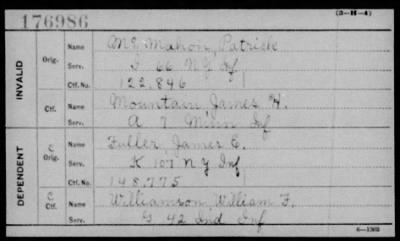 176986
(3—H—4)
INVALID
Orig.
Name McMahon, Patrick
Serv. I 66 N.Y. Inf
Ctf. No. 122,846
Ctf.
Name Mountain, James H.
Serv. A 7 Minn Inf
DEPENDENT
C Orig.
Name Fuller, James E.
Serv. K 107 N Y Inf
Ctf. No. 148,775
C Ctf.
Name Williamson, William F.
Serv. G 42 Ind Inf
6—1302